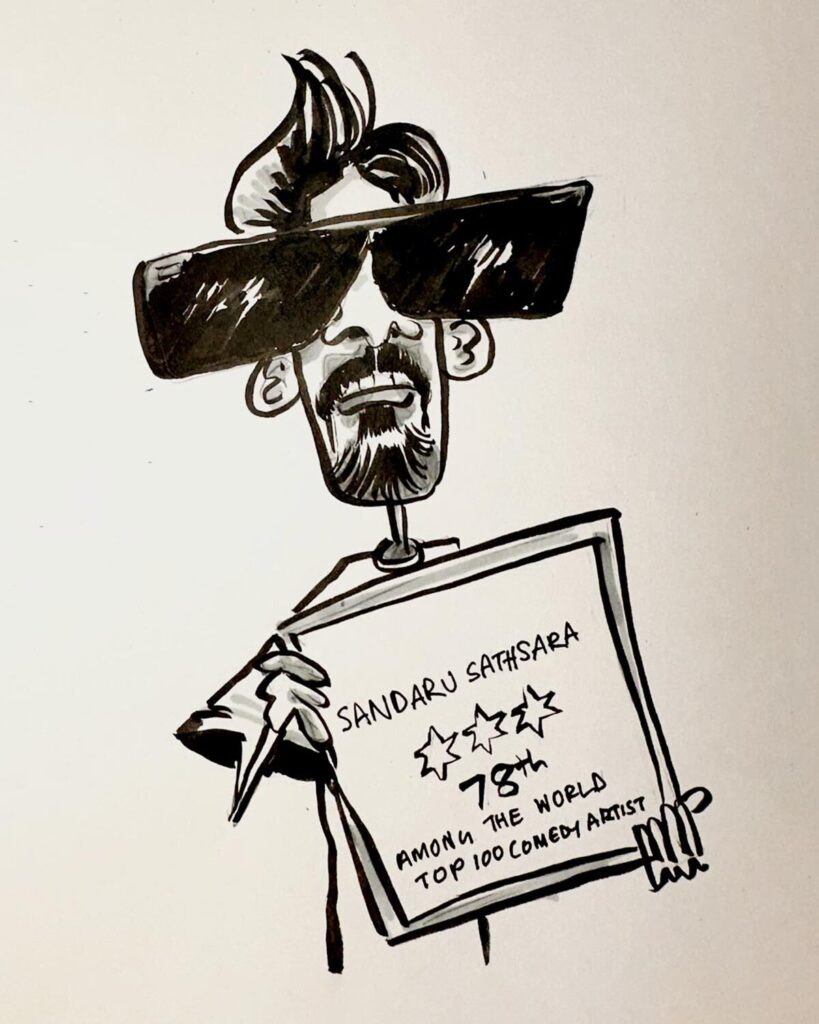 SANDARU SATHSARA
78th
AMONG THE WORLD
TOP 100 COMEDY ARTIST